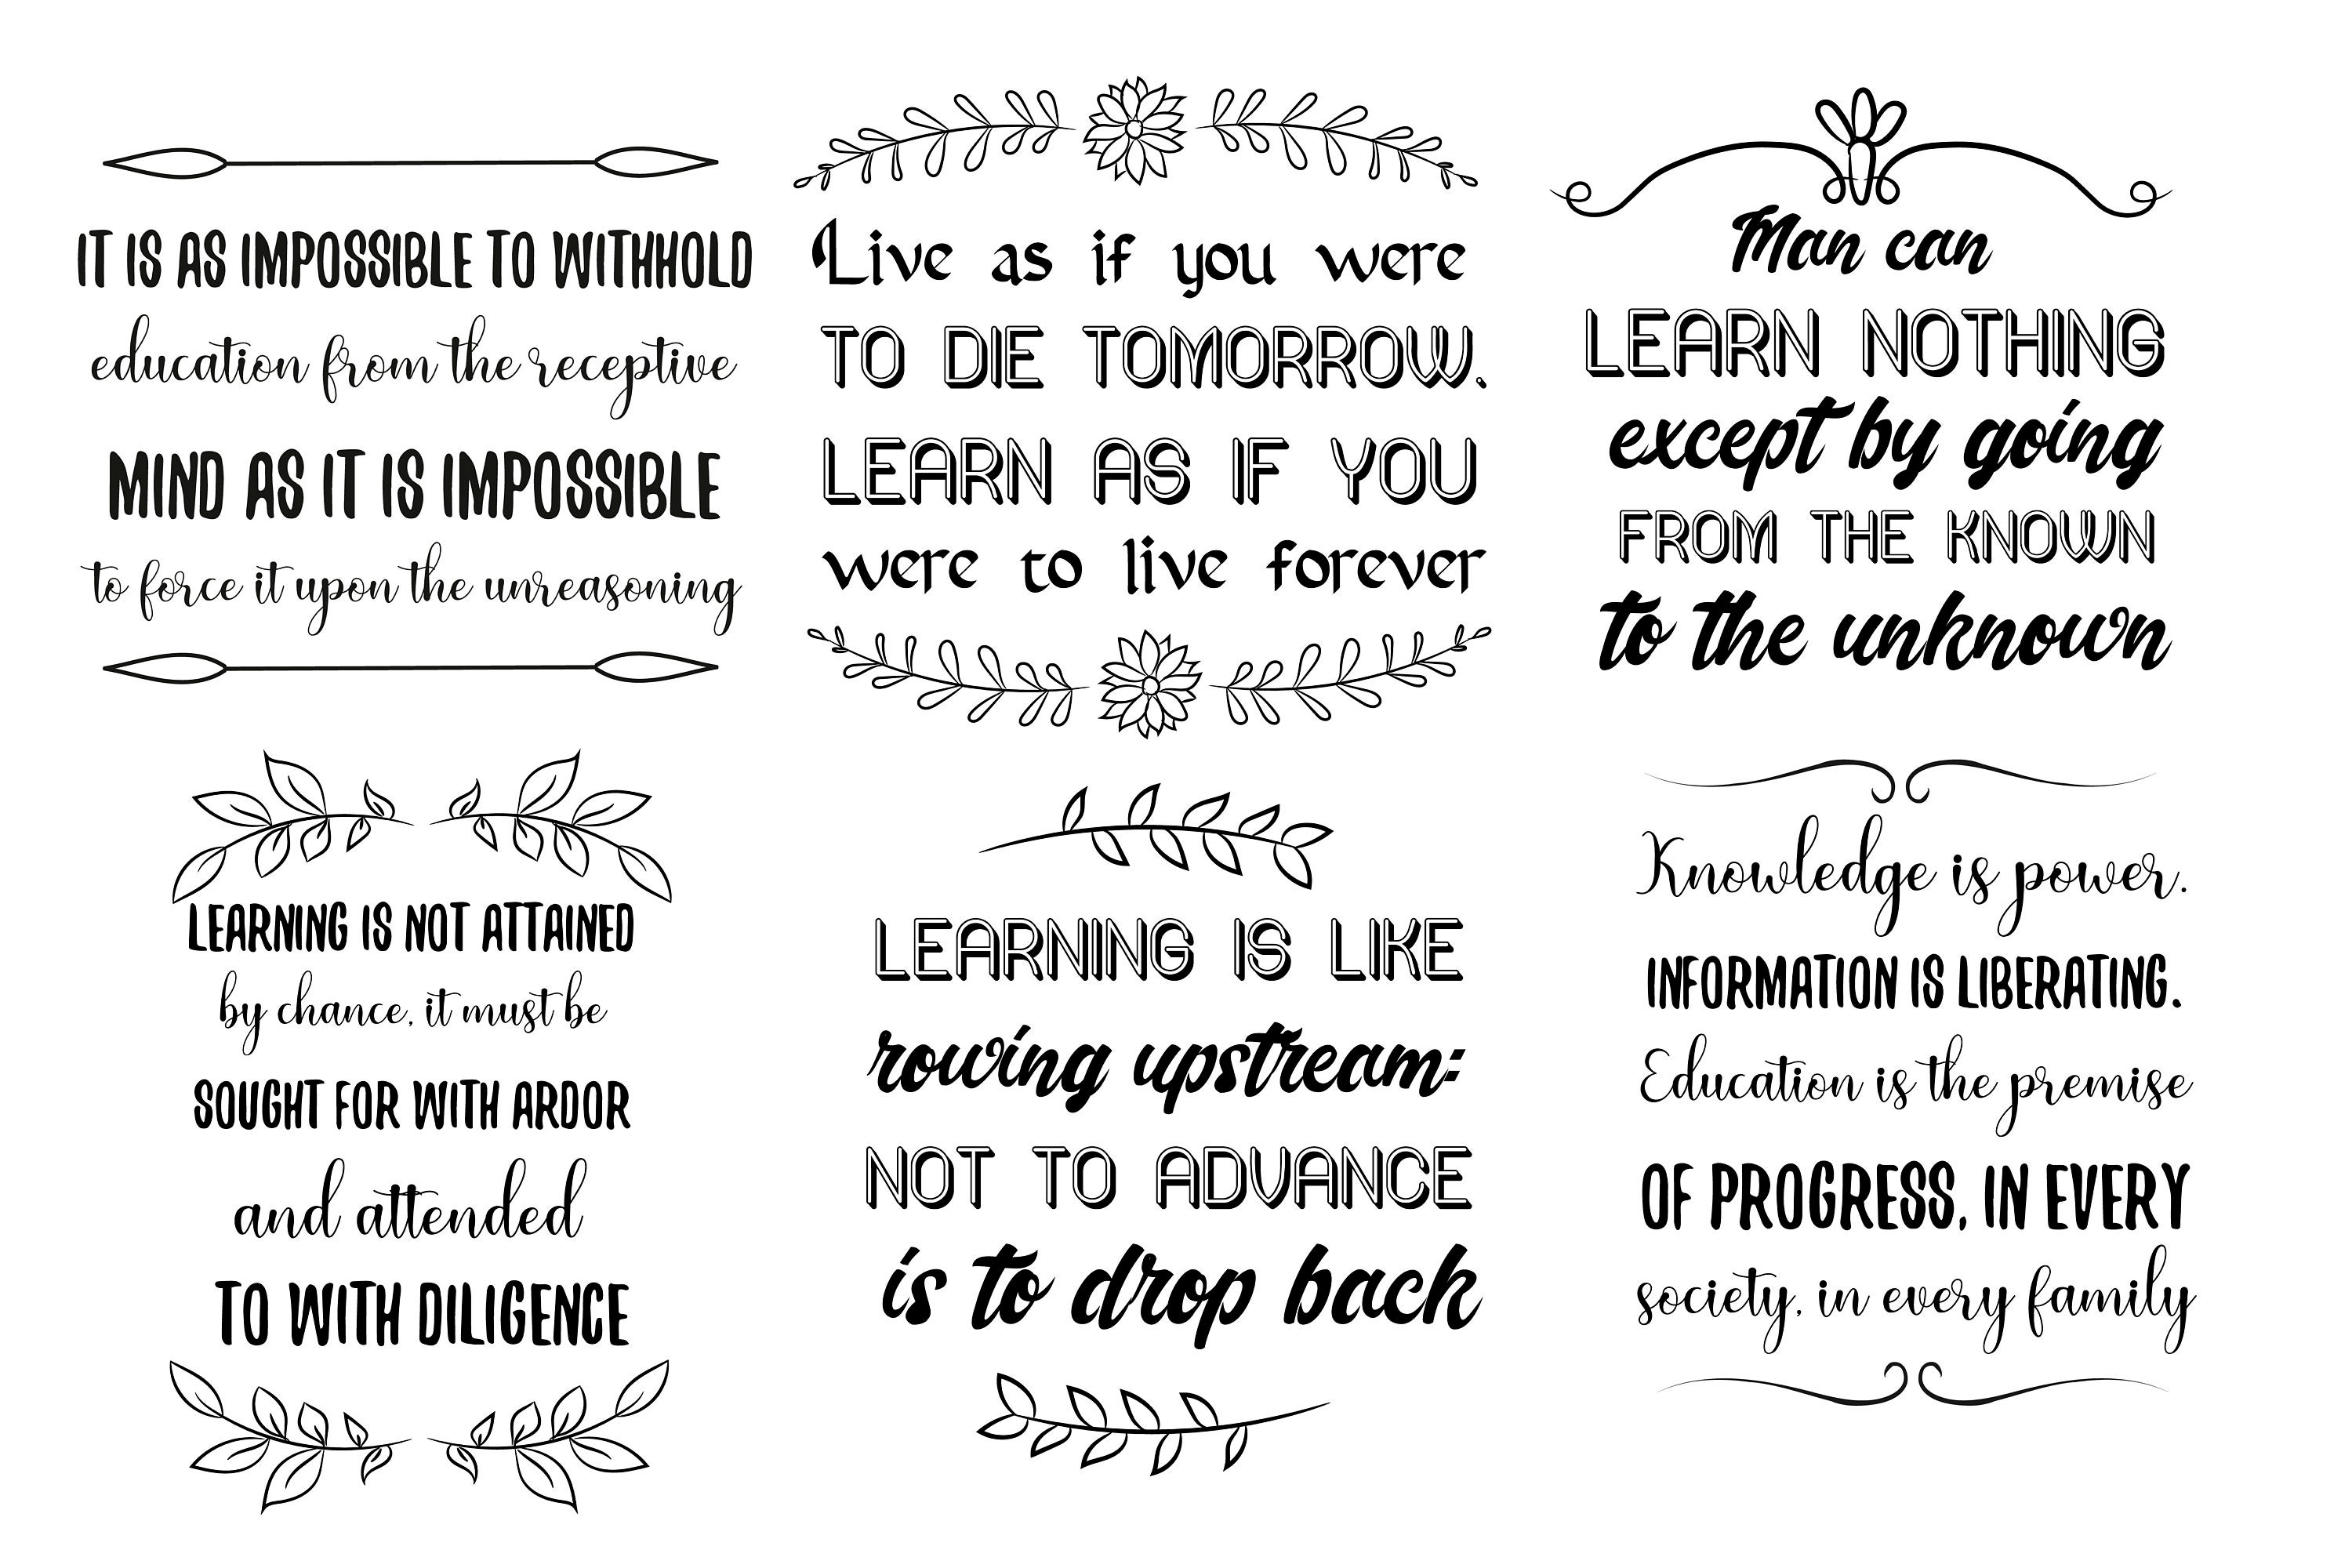 IT IS AS IMPOSSIBLE TO WITHHOLD
education from the receptive
MIND AS IT IS IMPOSSIBLE
to force it upon the unreasoning
Live as if you were
TO DIE TOMORROW.
LEARN AS IF YOU
were to live forever
Man can
LEARN NOTHING
except by going
FROM THE KNOWN
to the unknown
LEARNING IS NOT ATTAINED
by chance, it must be
SOUGHT FOR WITH ARDOR
and attended
TO WITH DILIGENCE
LEARNING IS LIKE
rowing upstream:
NOT TO ADVANCE
is to drop back
Knowledge is power.
INFORMATION IS LIBERATING.
Education is the premise
OF PROGRESS, IN EVERY
society, in every family